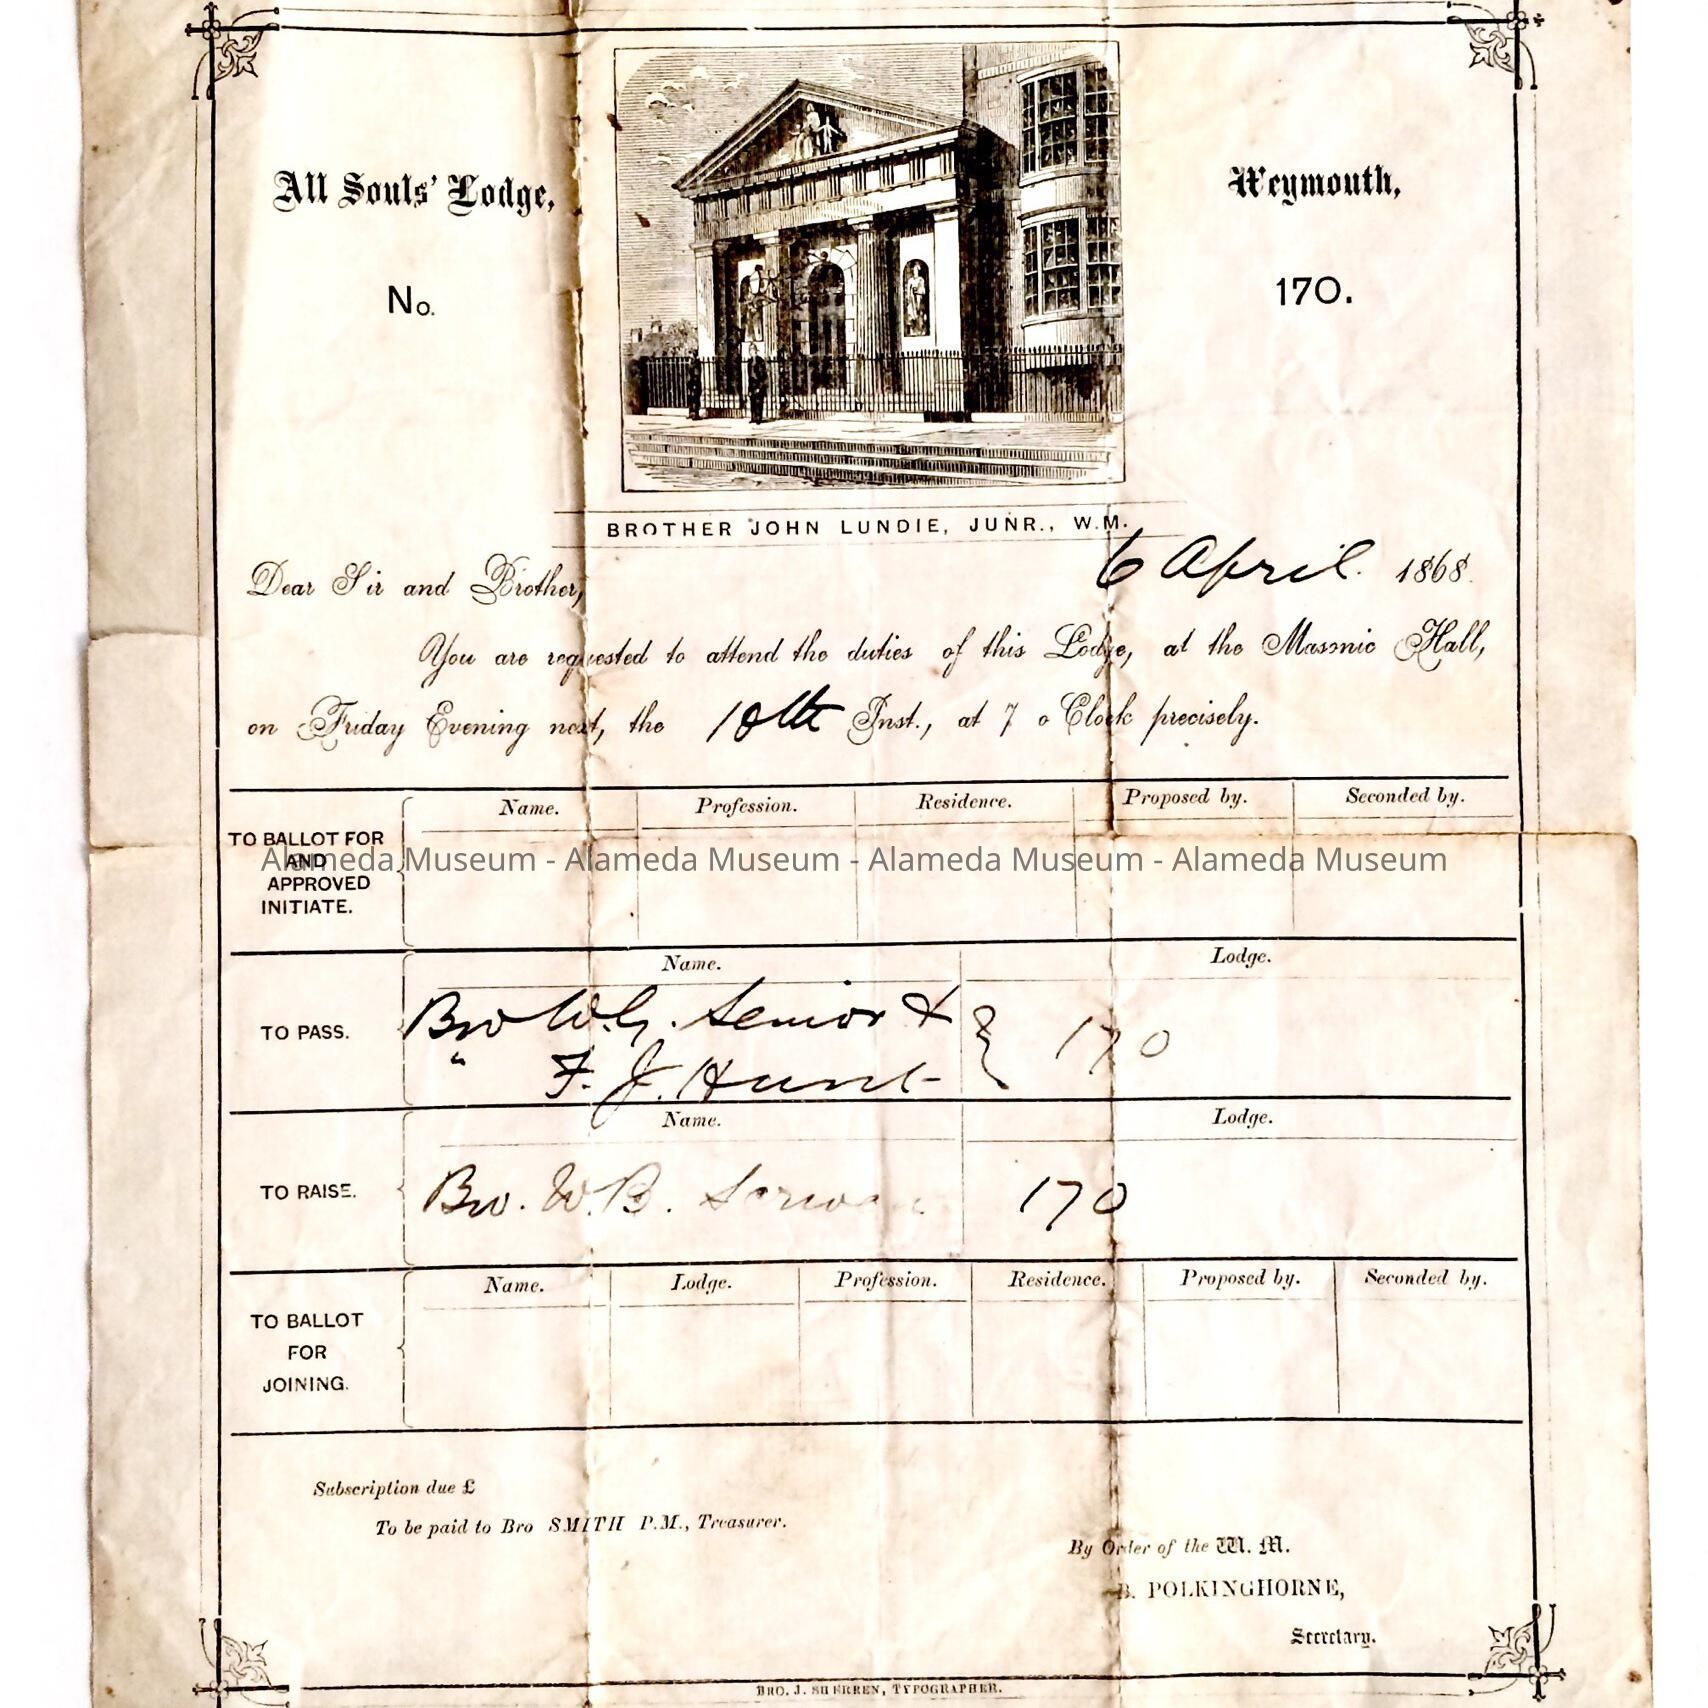 All Souls' Lodge, Weymouth,
No. 170.
BROTHER JOHN LUNDIE, JUNR., W.M.
6 April 1868.
Dear Sir and Brother,
You are requested to attend the duties of this Lodge, at the Masonic Hall,
on Friday Evening next, the 10th Inst., at 7 o Clock precisely.
TO BALLOT FOR AND APPROVED INITIATE.
Name. Profession. Residence. Proposed by. Seconded by.
Alameda Museum - Alameda Museum - Alameda Museum - Alameda Museum
Name. Lodge.
TO PASS.
Bro W.G. Senior & } 170
" F. J. Hunt
Name. Lodge.
TO RAISE. Bro. W.B. 170
Name. Lodge. Profession. Residence. Proposed by. Seconded by.
TO BALLOT
FOR
JOINING.
Subscription due £
To be paid to Bro SMITH P.M., Treasurer.
By Order of the W. M.
B. POLKINGHORNE,
Secretary.
BRO. J. SHERREN, TYPOGRAPHER.